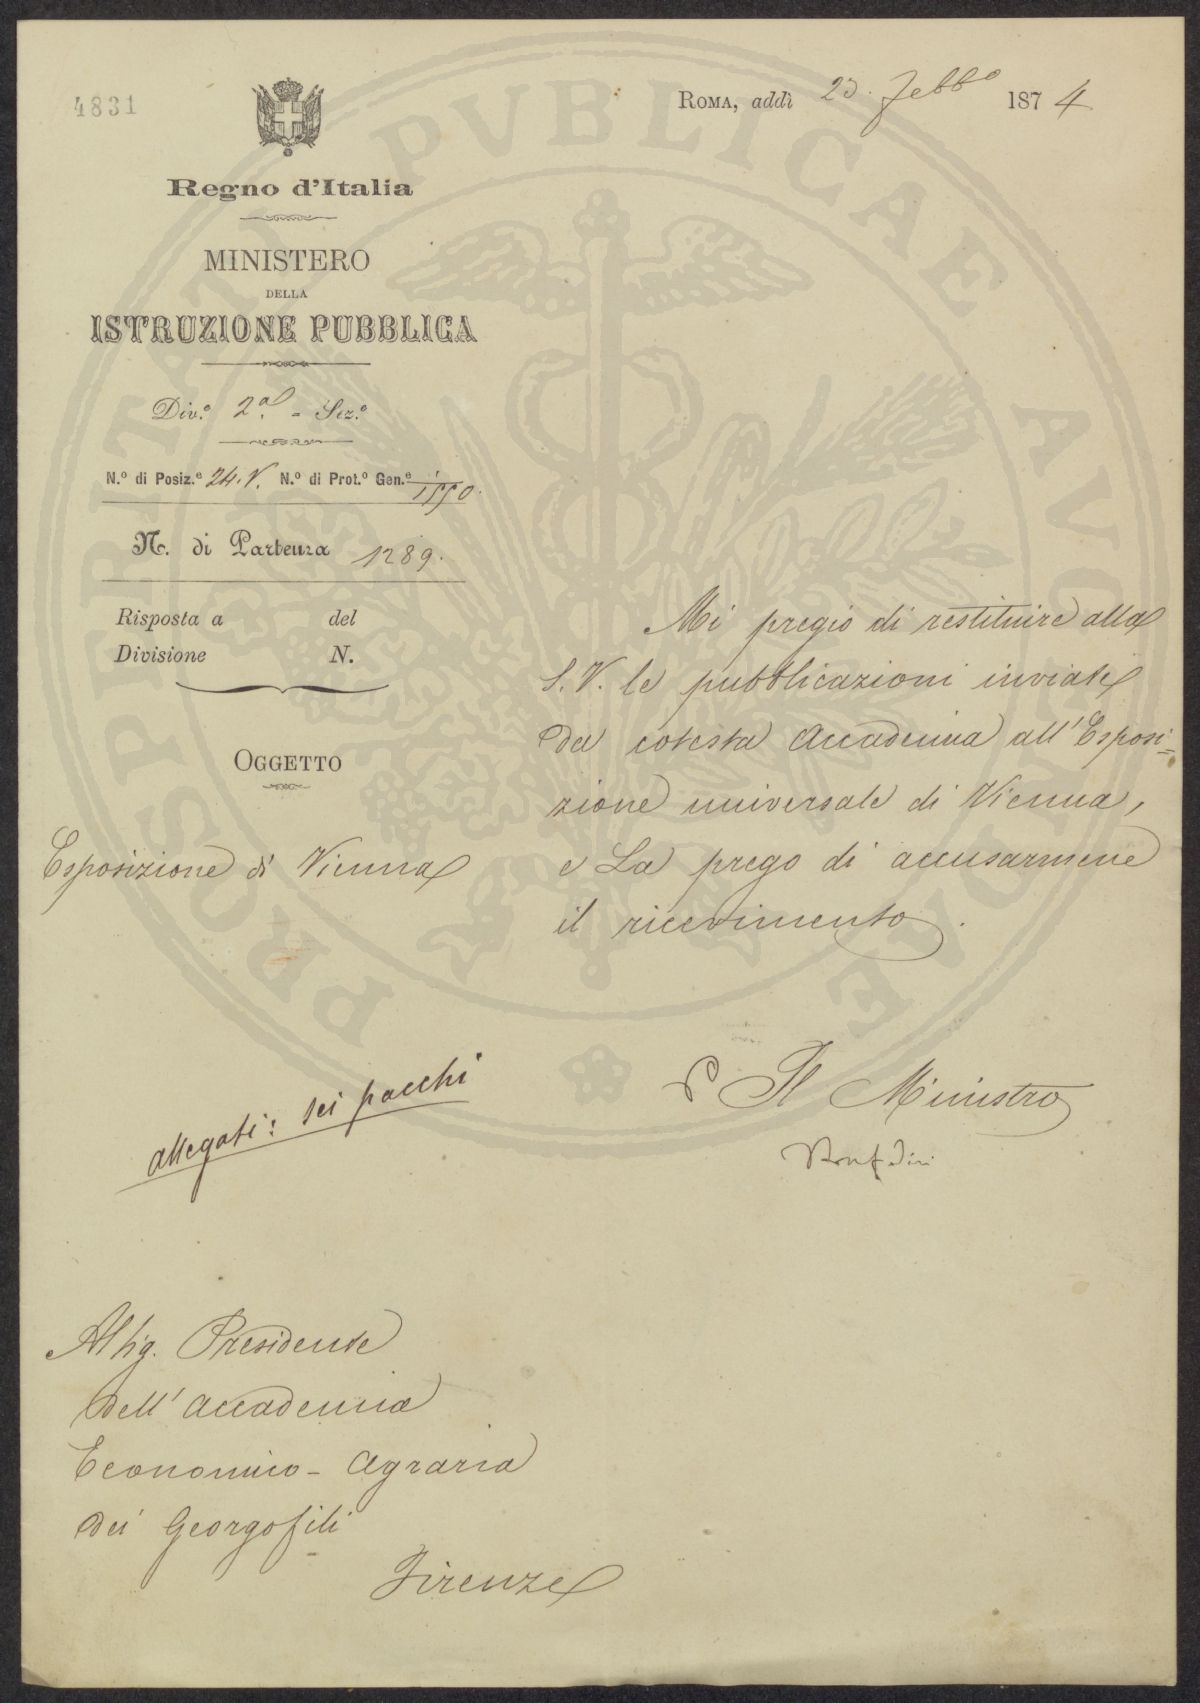 4831
ROMA, addì 23. Febb.o 1874
Regno d'Italia
MINISTERO
DELLA
ISTRUZIONE PUBBLICA
Div.e 2a. - Sez.e
N.o di Posiz.e 24. V. N.o di Prot.o Gen.e 1/1550.
N. di Partenza 1289.
Risposta a del
Divisione N.
OGGETTO
Esposizione di Vienna
Mi pregio di restituire alla
S. V. le pubblicazioni inviate
da cotesta Accademia all'Esposi-
zione universale di Vienna,
e La prego di accusarmene
il ricevimento.
allegati: sei pacchi
P Il Ministro
Al Sig. Presidente
dell'Accademia
Economico-Agraria
dei Georgofili
Firenze
PROSPERITATI PVBLICAE AVGENDAE